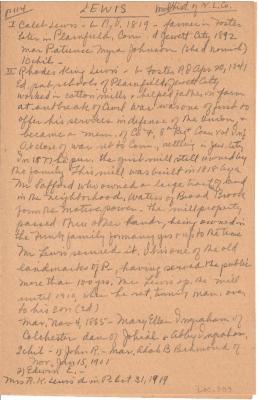 P114 LEWIS
I Caleb Lewis - b R.I. 1819 - farmer in Foster
later in Plainfield, Conn. d Jewett City 1892
mar Patience Johnson (she d
10 chil -
II Rhodes King Lewis - b Foster, R.I. Apr 20, 1841
Ed. pub. schools of Plainfield & Jewett City
worked in cotton mills & helped father on farm
at outbreak of Civil War was one of first to
offer his services in defense of the Union, &
became a mem. of Co. 8th Reg't Conn Vol Inf
At close of war ret to Conn, settling in Jew. City
in 187 he pur. the grist mill still owned by
the family. This mill was built in 1818 by a
Mr Safford who owned a large tract of land
in the neighborhood, waters of Broad Brook
form the motive power. The mill property
passed thru other hands, being owned in
the family for many yrs up to the time
Mr Lewis secured it. It is one of the old
landmarks of P. having served the public
more than 100 yrs. Mr Lewis op. the mill
until 1910, when he ret, turning it over
to his son (2d)
mar. Nov 4, 1865 - Mary Ellen Ingraham of
Colchester dau of & Abby Ingraham,
2 chil - 1) John R. - mar. B Richmond of
Nov. 15, 1901
2) Edwin E. -
Mrs R.K. Lewis d in P. Oct 31, 1919